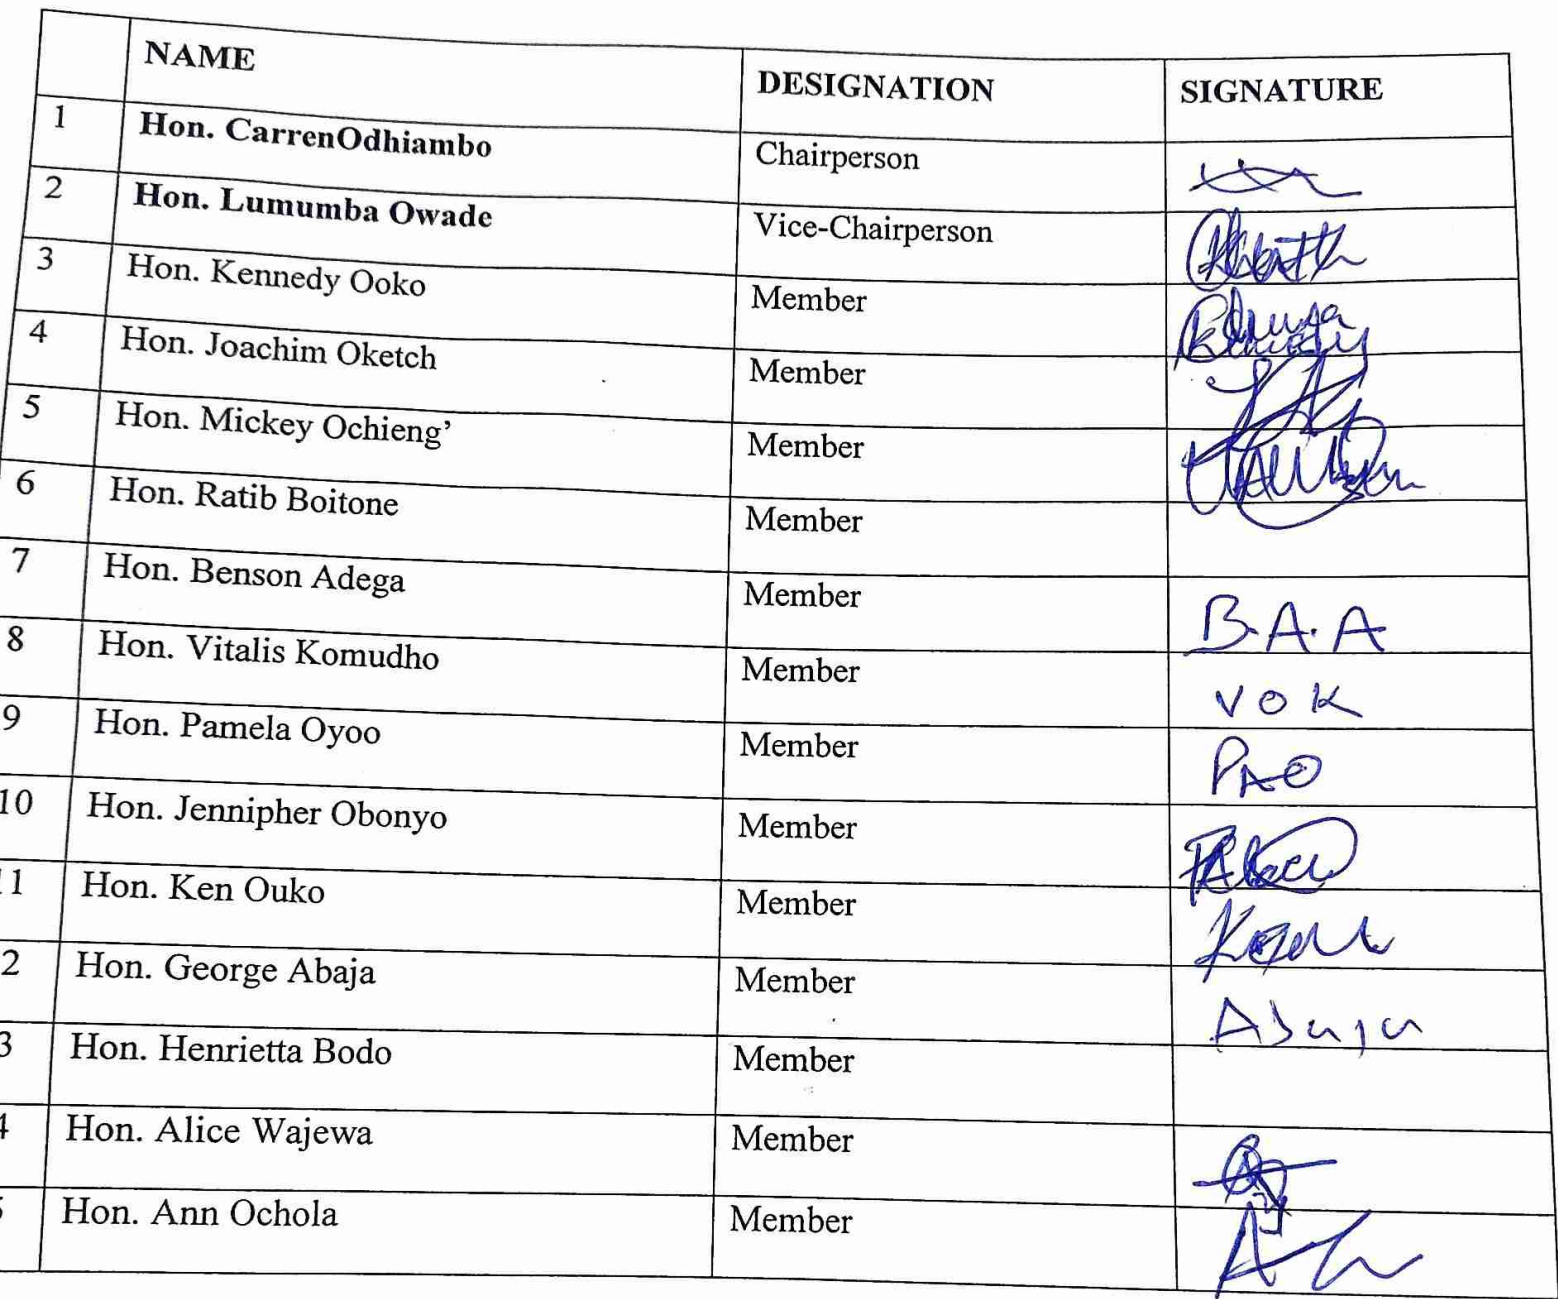 NAME DESIGNATION SIGNATURE
1 Hon. CarrenOdhiambo Chairperson
2 Hon. Lumumba Owade Vice-Chairperson
3 Hon. Kennedy Ooko Member
4 Hon. Joachim Oketch Member
5 Hon. Mickey Ochieng’ Member
6 Hon. Ratib Boitone Member
7 Hon. Benson Adega Member B.A.A
8 Hon. Vitalis Komudho Member VOK
9 Hon. Pamela Oyoo Member PAO
10 Hon. Jennipher Obonyo Member
11 Hon. Ken Ouko Member
2 Hon. George Abaja Member Abaja
3 Hon. Henrietta Bodo Member
4 Hon. Alice Wajewa Member
5 Hon. Ann Ochola Member